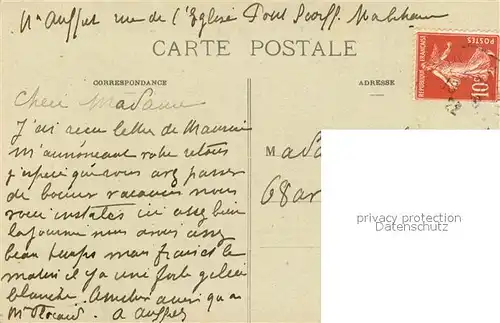 Mme Auffret rue de l'Eglise Pont Scorff Morbihan
CARTE POSTALE
CORRESPONDANCE
ADRESSE
REPUBLIQUE FRANÇAISE
POSTES
10c
Chère Madame
J'ai reçu lettre de Maurice
m'annonçant votre retour
j'espère que vous avez passer
de bonnes vacances nous
voici installés ici assez bien
la journée nous avons assez
beau temps mais frais et le
matin il y a une forte gelée
blanche. Amitiés ainsi qu'a
Mr A Auffret
Mada
68 ar
privacy protection
Datenschutz